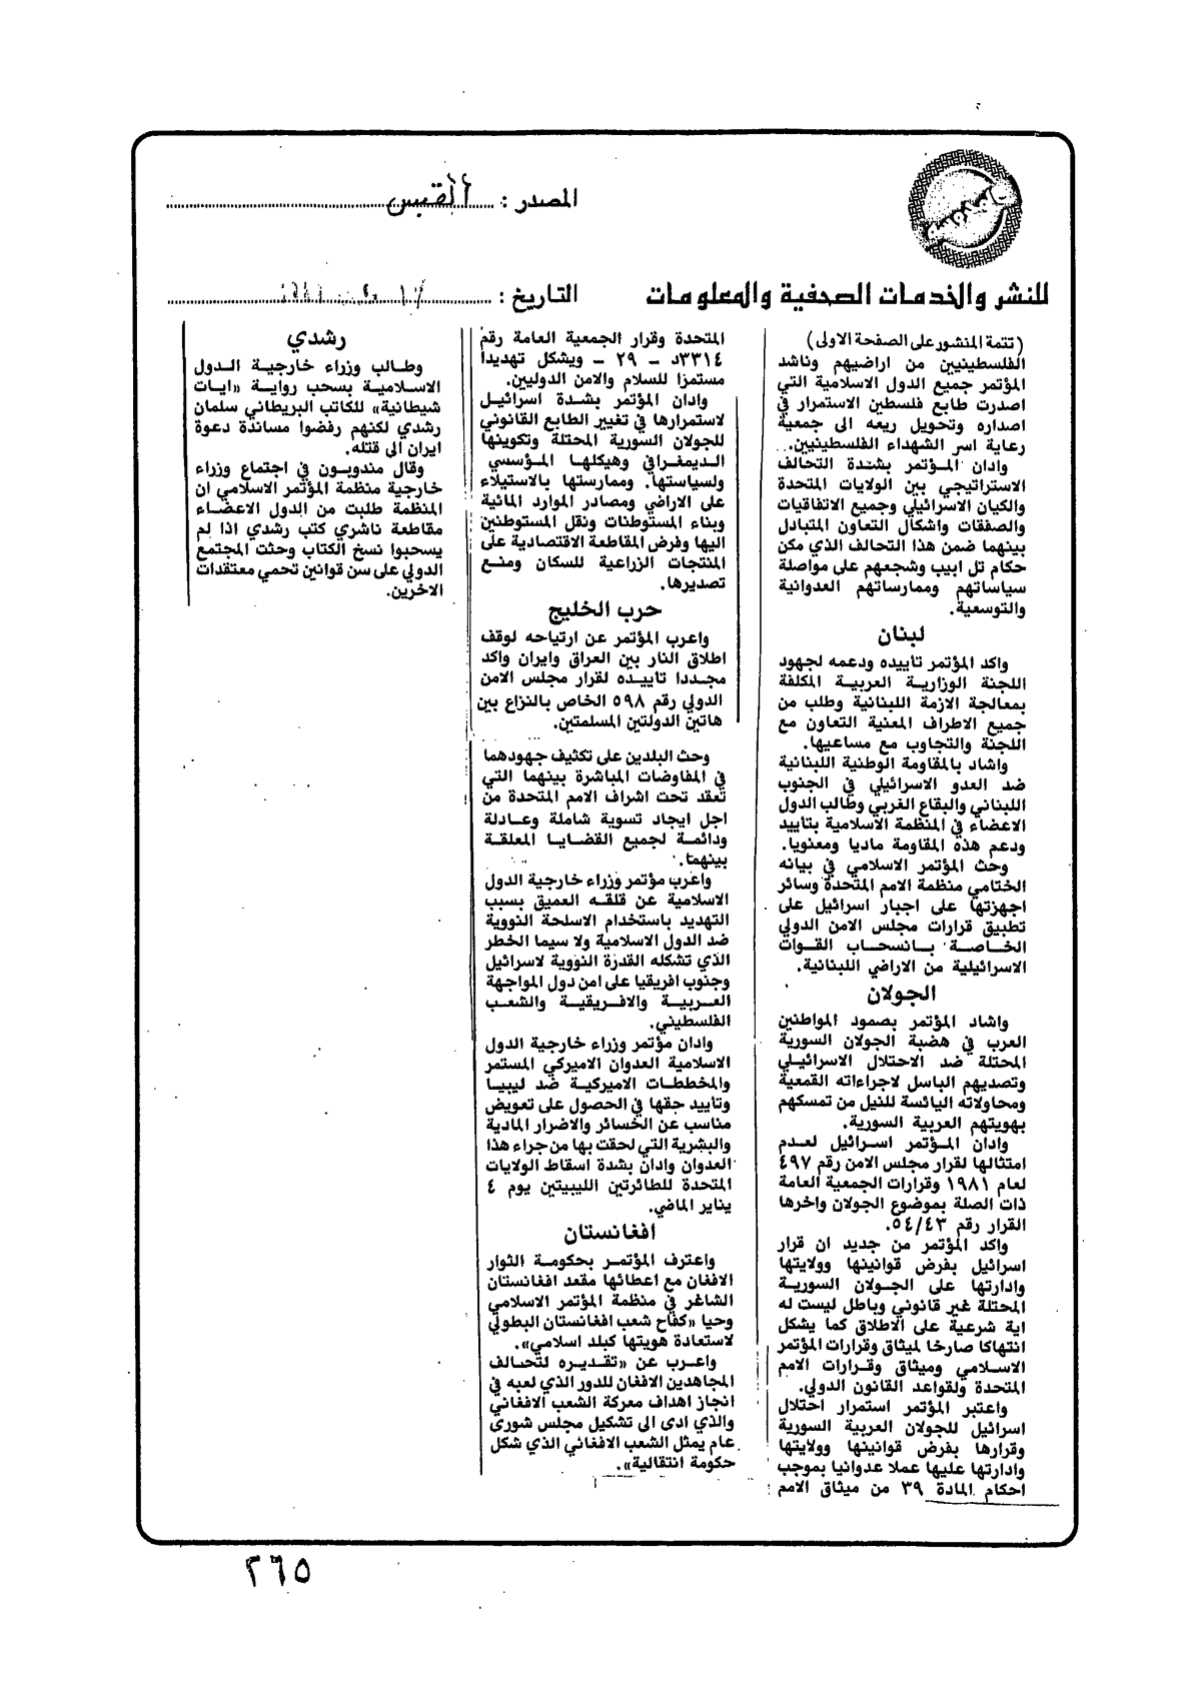 المصدر : القبس
للنشر والخدمات الصحفية والمعلومات
التاريخ :
(تتمة المنشور على الصفحة الاولى)
الفلسطينيين من اراضيهم وناشد
المؤتمر جميع الدول الاسلامية التي
اصدرت طابع فلسطين الاستمرار في
اصداره وتحويل ريعه الى جمعية
رعاية اسر الشهداء الفلسطينيين.
وادان المؤتمر بشدة التحالف
الاستراتيجي بين الولايات المتحدة
والكيان الاسرائيلي وجميع الاتفاقيات
والصفقات واشكال التعاون المتبادل
بينهما ضمن هذا التحالف الذي مكن
حكام تل ابيب وشجعهم على مواصلة
سياساتهم وممارساتهم العدوانية
والتوسعية.
لبنان
واكد المؤتمر تاييده ودعمه لجهود
اللجنة الوزارية العربية المكلفة
بمعالجة الازمة اللبنانية وطلب من
جميع الاطراف المعنية التعاون مع
اللجنة والتجاوب مع مساعيها.
واشاد بالمقاومة الوطنية اللبنانية
ضد العدو الاسرائيلي في الجنوب
اللبناني والبقاع الغربي وطالب الدول
الاعضاء في المنظمة الاسلامية بتاييد
ودعم هذه المقاومة ماديا ومعنويا.
وحث المؤتمر الاسلامي في بيانه
الختامي منظمة الامم المتحدة وسائر
اجهزتها على اجبار اسرائيل على
تطبيق قرارات مجلس الامن الدولي
الخاصة بانسحاب القوات
الاسرائيلية من الاراضي اللبنانية.
الجولان
واشاد المؤتمر بصمود المواطنين
العرب في هضبة الجولان السورية
المحتلة ضد الاحتلال الاسرائيلي
وتصديهم الباسل لاجراءاته القمعية
ومحاولاته اليائسة للنيل من تمسكهم
بهويتهم العربية السورية.
وادان المؤتمر اسرائيل لعدم
امتثالها لقرار مجلس الامن رقم ٤٩٧
لعام ١٩٨١ وقرارات الجمعية العامة
ذات الصلة بموضوع الجولان واخرها
القرار رقم ٥٤/٤٣.
واكد المؤتمر من جديد ان قرار
اسرائيل بفرض قوانينها وولايتها
وادارتها على الجولان السورية
المحتلة غير قانوني وباطل ليست له
اية شرعية على الاطلاق كما يشكل
انتهاكا صارخا لميثاق وقرارات المؤتمر
الاسلامي وميثاق وقرارات الامم
المتحدة ولقواعد القانون الدولي.
واعتبر المؤتمر استمرار احتلال
اسرائيل للجولان العربية السورية
وقرارها بفرض قوانينها وولايتها
وادارتها عليها عملا عدوانيا بموجب
احكام المادة ٣٩ من ميثاق الامم
المتحدة وقرار الجمعية العامة رقم
٣٣١٤د - ٢٩ - ويشكل تهديدا
مستمرا للسلام والامن الدوليين.
وادان المؤتمر بشدة اسرائيل
لاستمرارها في تغيير الطابع القانوني
للجولان السورية المحتلة وتكوينها
الديمغرافي وهيكلها المؤسسي
ولسياستها. وممارستها بالاستيلاء
على الاراضي ومصادر الموارد المائية
وبناء المستوطنات ونقل المستوطنين
اليها وفرض المقاطعة الاقتصادية على
المنتجات الزراعية للسكان ومنع
تصديرها.
حرب الخليج
واعرب المؤتمر عن ارتياحه لوقف
اطلاق النار بين العراق وايران واكد
مجددا تاييده لقرار مجلس الامن
الدولي رقم ٥٩٨ الخاص بالنزاع بين
هاتين الدولتين المسلمتين.
وحث البلدين على تكثيف جهودهما
في المفاوضات المباشرة بينهما التي
تعقد تحت اشراف الامم المتحدة من
اجل ايجاد تسوية شاملة وعادلة
ودائمة لجميع القضايا المعلقة
بينهما.
واعرب مؤتمر وزراء خارجية الدول
الاسلامية عن قلقه العميق بسبب
التهديد باستخدام الاسلحة النووية
ضد الدول الاسلامية ولا سيما الخطر
الذي تشكله القدرة النووية لاسرائيل
وجنوب افريقيا على امن دول المواجهة
العربية والافريقية والشعب
الفلسطيني.
وادان مؤتمر وزراء خارجية الدول
الاسلامية العدوان الاميركي المستمر
والمخططات الاميركية ضد ليبيا
وتاييد حقها في الحصول على تعويض
مناسب عن الخسائر والاضرار المادية
والبشرية التي لحقت بها من جراء هذا
العدوان وادان بشدة اسقاط الولايات
المتحدة للطائرتين الليبيتين يوم ٤
يناير الماضي.
افغانستان
واعترف المؤتمر بحكومة الثوار
الافغان مع اعطائها مقعد افغانستان
الشاغر في منظمة المؤتمر الاسلامي
وحيا «كفاح شعب افغانستان البطولي
لاستعادة هويتها كبلد اسلامي».
واعرب عن «تقديره لتحالف
المجاهدين الافغان للدور الذي لعبه في
انجاز اهداف معركة الشعب الافغاني
والذي ادى الى تشكيل مجلس شورى
عام يمثل الشعب الافغاني الذي شكل
حكومة انتقالية».
رشدي
وطالب وزراء خارجية الدول
الاسلامية بسحب رواية «ايات
شيطانية» للكاتب البريطاني سلمان
رشدي لكنهم رفضوا مساندة دعوة
ايران الى قتله.
وقال مندوبون في اجتماع وزراء
خارجية منظمة المؤتمر الاسلامي ان
المنظمة طلبت من الدول الاعضاء
مقاطعة ناشري كتب رشدي اذا لم
يسحبوا نسخ الكتاب وحثت المجتمع
الدولي على سن قوانين تحمي معتقدات
الاخرين.
٢٦٥